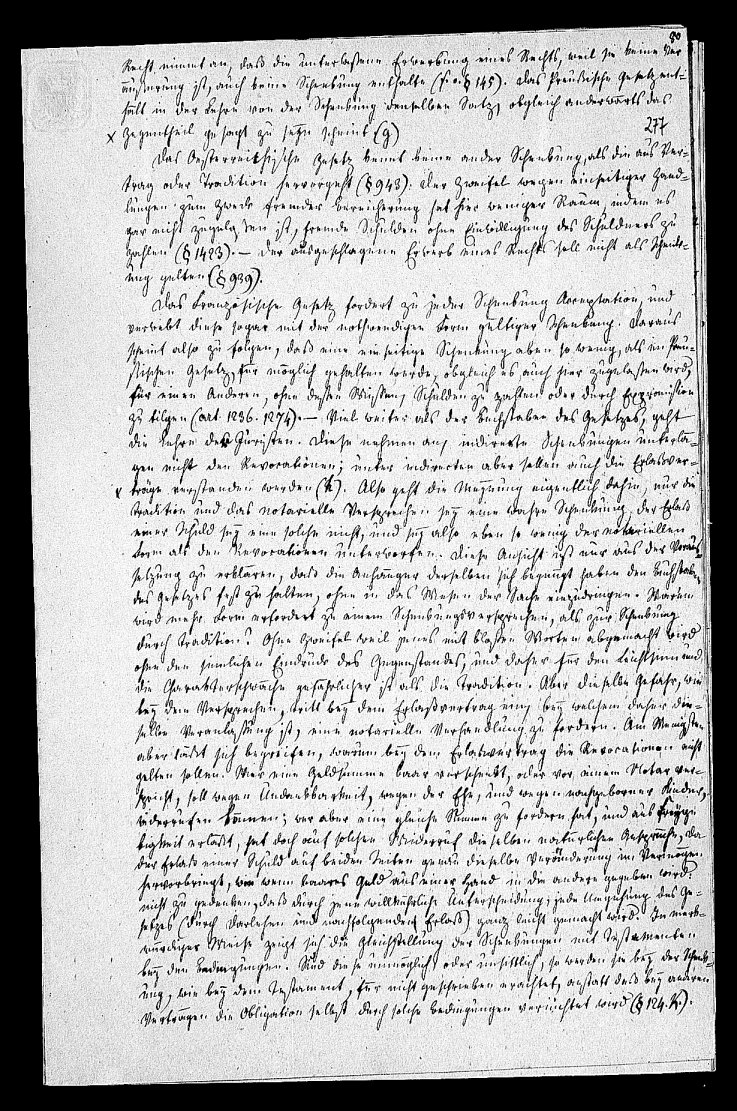 80
Recht nimmt an, daß die unterlassene Erwerbung eines Rechts, weil sie keine Ver-
äußerung ist, auch keine Schenkung enthalte (s. o. § 145). Das Preußische Gesetz ent-
hält in der Lehre von der Schenkung denselben Satz, obgleich anderwärts das
Gegentheil gesagt zu seyn scheint (g)
277
Das Oesterreichische Gesetz kennt keine andere Schenkung, als die aus Ver-
trag oder Tradition hervorgeht (§ 943). Der Zweifel wegen einseitiger Hand-
lungen zum Zweck fremder Bereicherung hat hier weniger Raum, indem es
gar nicht zugelassen ist, fremde Schulden ohne Einwilligung des Schuldners zu
zahlen (§ 1423). — Der ausgeschlagene Erwerb eines Rechts soll nicht als Schenk-
ung gelten (§ 939).
Das Französische Gesetz fordert zu jeder Schenkung Acceptation, und
verbebt diese sogar mit der nothwendigen Form gültiger Schenkung. Daraus
scheint also zu folgen, daß eine einseitige Schenkung eben so wenig, als im Preu-
ßischen Gesetz, für möglich gehalten werde, obgleich es auch hier zugelassen wird,
für einen Anderen, ohne dessen Wissen, Schulden zu zahlen oder durch Expromission
zu tilgen (art. 1236. 1274). — Viel weiter als der Buchstaben des Gesetzes, geht
die Lehre der Juristen. Diese nehmen an, indirecte Schenkungen unterlä-
gen nicht den Revocationen; unter indirecten aber sollen auch die Erlaßver-
träge verstanden werden (h). Also geht die Meynung eigentlich dahin, nur die
Tradition und das notarielle Versprechen sey eine wahre Schenkung, der Erlaß
einer Schuld sey eine solche nicht, und sey also eben so wenig der notariellen
Form als den Revocationen unterworfen. Diese Ansicht ist nur aus der Voraus-
setzung zu erklären, daß die Anhänger derselben sich begnügt haben den Buchstaben
des Gesetzes fest zu halten, ohne in das Wesen der Sache einzudringen. Warum
wird mehr Form erfordert zu einem Schenkungsversprechen, als zur Schenkung
durch Tradition? Ohne Zweifel weil jenes mit bloßen Worten abgemacht wird
ohne den sinnlichen Eindruck des Gegenstandes, und daher für den Leichtsinn und
die Charakterschwäche gefährlicher ist als die Tradition. Aber dieselbe Gefahr, wie
bey dem Versprechen, tritt bey dem Erlaßvertrag ein, bey welchem daher die-
selbe Veranlassung ist, eine notarielle Verhandlung zu fordern. Am Wenigsten
aber läßt sich begreifen, warum bey dem Erlaßvertrag die Revocationen nicht
gelten sollen. Wer eine Geldsumme baar verschenkt, oder vor einem Notar ver-
spricht, soll wegen Undankbarkeit, wegen der Ehe, und wegen nachgeborner Kinder,
widerrufen können; wer aber eine gleiche Summe zu fordern hat, und aus Freyge-
bigkeit erläßt, hat doch auf solchen Widerruf dieselben natürlichen Ansprüche, da
der Erlaß einer Schuld auf beiden Seiten genau dieselbe Veränderung im Vermögen
hervorbringt, wie wenn baares Geld aus einer Hand in die andere gegeben wird;
nicht zu gedenken, daß durch jene willkührliche Unterscheidung jede Umgehung des Ge-
setzes (durch Darlehen und nachfolgenden Erlaß) ganz leicht gemacht wird. In merk-
würdiger Weise zeigt sich die Gleichstellung der Schenkungen mit Testamenten
bey den Bedingungen. Sind diese unmöglich, oder unsittlich, so werden sie bey der Schenk-
ung, wie bey dem Testament, für nicht geschrieben erachtet, anstatt daß bey anderen
Verträgen die Obligation selbst durch solche Bedingungen vernichtet wird (§ 124. k).